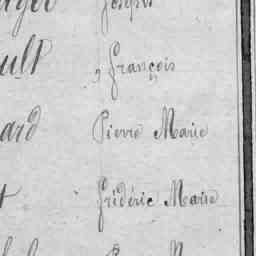 Joseph
ult François
ard Pierre Marie
t Frédéric Marie